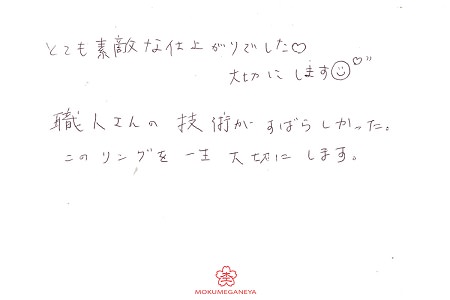 とても素敵な仕上がりでした♡
大切にします☺♡”
職人さんの技術がすばらしかった。
このリングを一生大切にします。
MOKUMEGANEYA